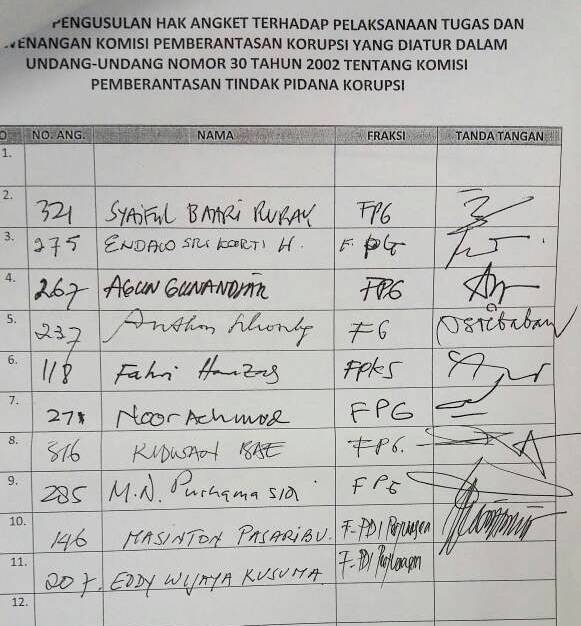 PENGUSULAN HAK ANGKET TERHADAP PELAKSANAAN TUGAS DAN
WENANGAN KOMISI PEMBERANTASAN KORUPSI YANG DIATUR DALAM
UNDANG-UNDANG NOMOR 30 TAHUN 2002 TENTANG KOMISI
PEMBERANTASAN TINDAK PIDANA KORUPSI
O NO. ANG. NAMA FRAKSI TANDA TANGAN
1.
2. 321 SYAIFUL BAHRI RURAY FPG
3. 275 ENDANG SRI KARTI H. F. PG
4. 267 AGUN GUNANDJAR FPG
5. 237 FG
6. 118 Fahri Hamzah FPKS
7. 271 Noor Achmad FPG
8. 316 RIDWAN BAE FPG.
9. 285 M.N. Purnamasidi FPG
10. 146 MASINTON PASARIBU. F-PDI Perjuangan
11. 207. EDDY WIJAYA KUSUMA F-PDI Perjuangan
12.